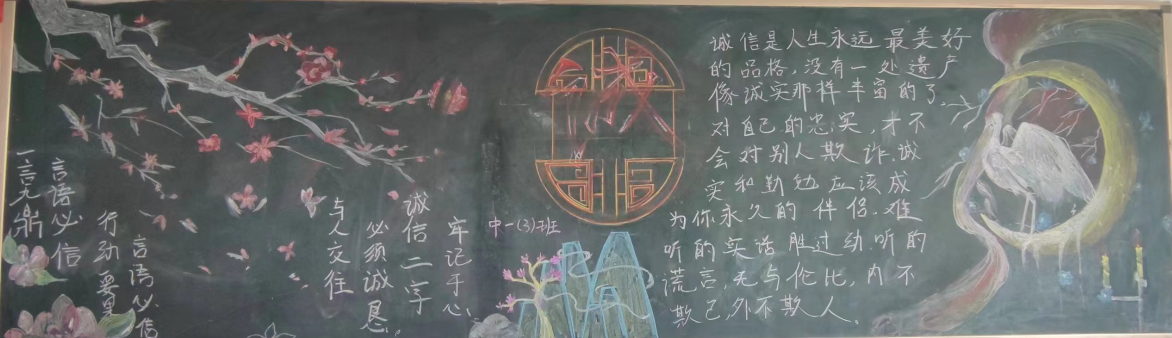 一言九鼎
言语必信
行动要果
言语必信
与人交往
必须诚恳。
诚信二字
牢记于心
中一(3)班
诚信
诚信是人生永远最美好
的品格,没有一处遗产
像诚实那样丰富的了。
对自己的忠实,才不
会对别人欺诈。诚
实和勤勉应该成
为你永久的伴侣。难
听的实话胜过动听的
谎言,无与伦比,内不
欺己,外不欺人。